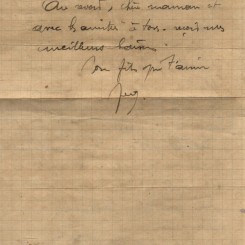 Au revoir, chère maman et
avec la amitié à tous. reçois mes
meilleurs baisers
Ton fils qui t'aime